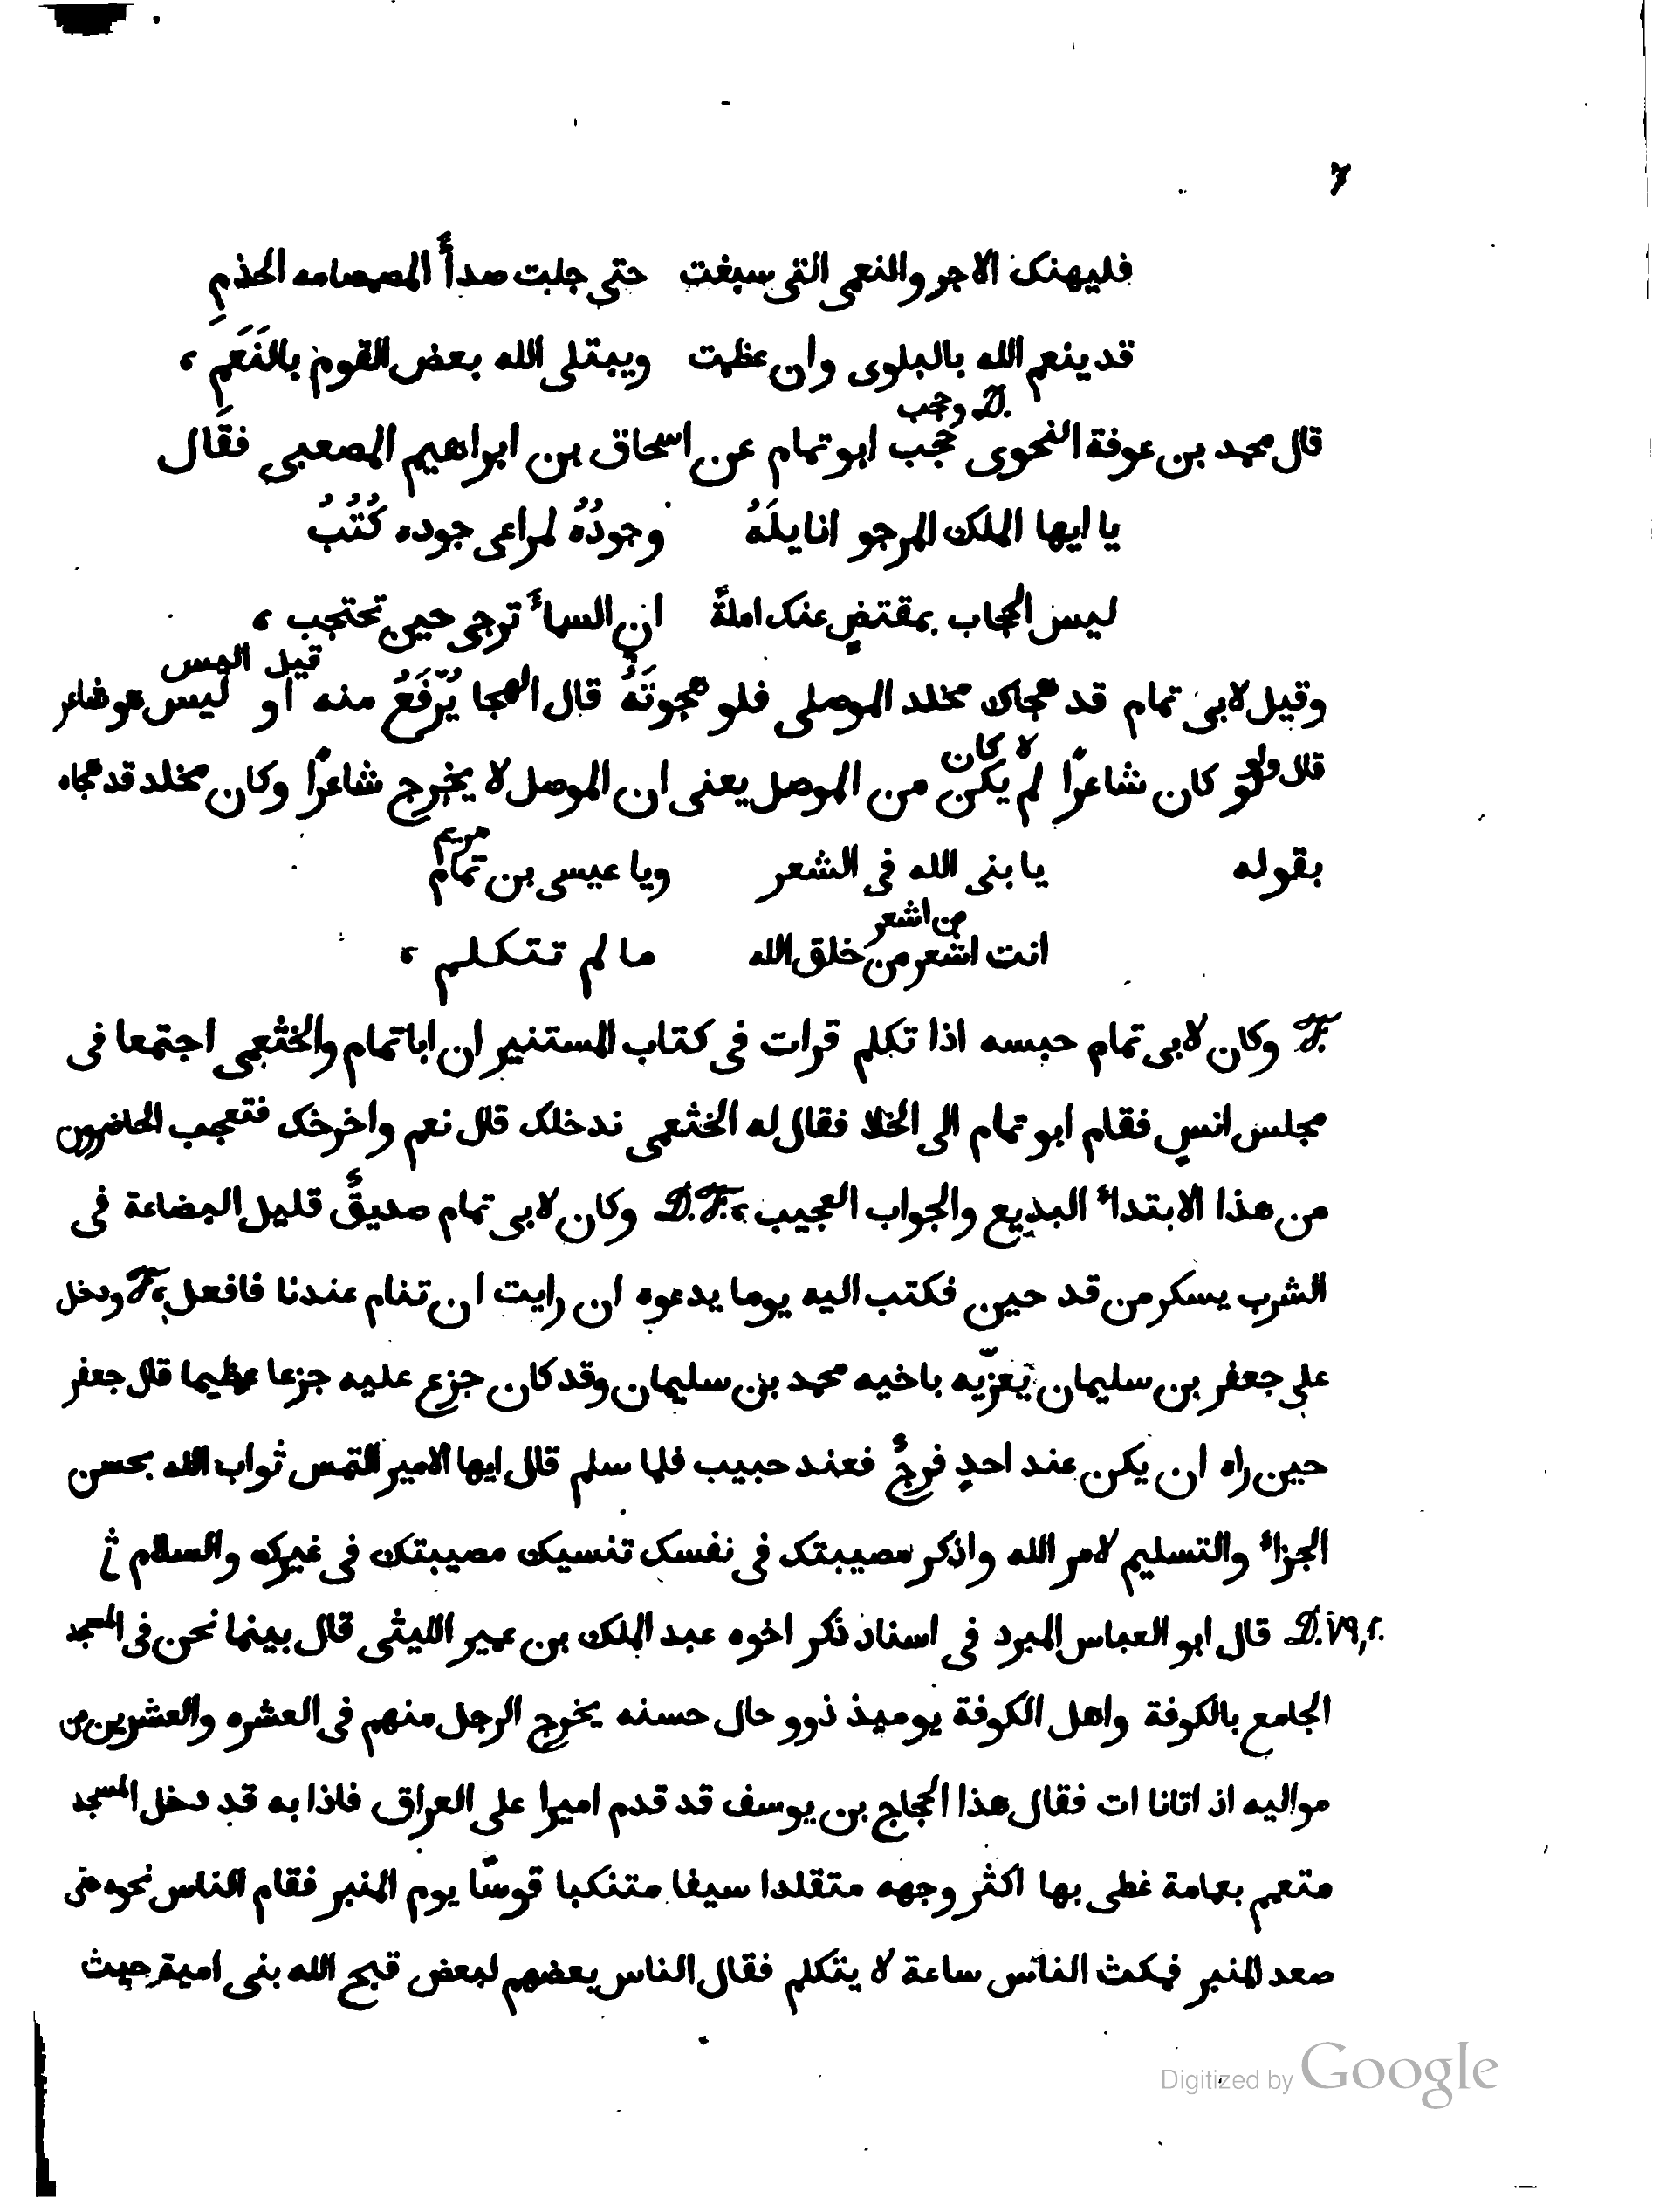 7
فليهنك الاجر والنعمى التى سبغت حتى جلبت صدأَ المصصامه الخذمِ
قد ينعم الله بالبلوى وان عظمت ويبتلى الله بعض القوم بالنَعَمِ ،
D. وحجب
قال محمد بن عوفة النحوى حُجب ابو تمام عن اسحاق بن ابراهيم المصعبى فقَال
يا ايها الملك المرجو انا يلَهُ وجودُهُ لمراعى جوده كُتُبُ
ليس الحجاب بمقتضٍ عنك املةً ان السماءَ ترجى حين تحتجب ،
قيل اليس
وقيل لابى تمام قد هجاك مخلد الموصلى فلو هجوتَهُ قال الهجا يُرّفَعُ منه او ليس هو شاعر
ولو لا كان
قال لو كان شاعرًا لم يكن من الموصل يعنى ان الموصل لا يخرج شاعرًا وكان مخلد قد هجاه
مريم
بقوله يا بنى الله فى الشعر ويا عيسى بن تمام
من اشعر
انت اشعر من خلق الله ما لم تتكلم ،
F. وكان لابى تمام حبسه اذا تكلم قرات فى كتاب المستنير ان ابا تمام والخثعمى اجتمعا فى
مجلس انسٍ فقام ابو تمام الى الخلا فقال له الخثعمى ندخلك قال نعم واخرخك فتعجب الحاضرون
من هذا الابتداء البديع والجواب العجيب ، D.F. وكان لابى تمام صديقٌ قليل البضاعة فى
الشرب يسكر من قد حين فكتب اليه يوما يدعوه ان رايت ان تنام عندنا فافعل ، F. ودخل
على جعفر بن سليمان يعزّيه باخيه محمد بن سليمان وقد كان جزع عليه جزعا عظيما قال جعفر
حين راه ان يكن عند احدٍ فرجٌ فعند حبيب فلما سلم قال ايها الامير التمس ثواب الله بحسن
الجزاء والتسليم لامر الله واذكر مصيبتك فى نفسك تنسيك مصيبتك فى غيرك والسلام
D. ١٧٩,٢. قال ابو العباس المبرد فى اسناد ذكر اخوه عبد الملك بن عمير الليثى قال بينما نحن فى المسجد
الجامع بالكوفة واهل الكوفة يوميذ ذوو حال حسنه يخرج الرجل منهم فى العشره والعشرين من
مواليه اذ اتانا ات فقال هذا الحجاج بن يوسف قد قدم اميرا على العراق فاذا به قد دخل المسجد
متعمم بعمامة غطى بها اكثر وجهه متقلدا سيفا متنكبا قوسًا يوم المنبر فقام الناس نحوه حتى
صعد المنبر فمكث الناس ساعة لا يتكلم فقال الناس بعضهم لبعض قبح الله بنى امية حيث
Digitized by Google